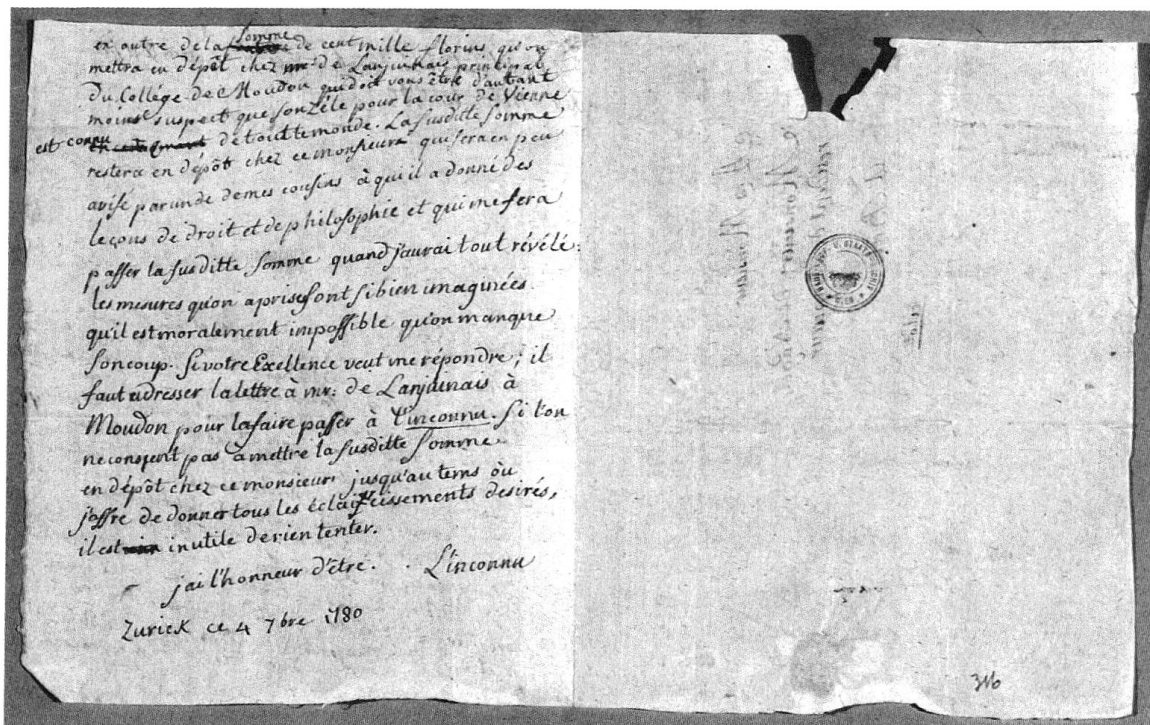 en outre de la somme de cent mille florins qu'on
mettra en dépôt chez mr de Lanjuinais principal
du Collége de Moudon qui doit vous être d'autant
moins suspect que son zéle pour la cour de Vienne
est connu de tout le monde. La susditte somme
restera en dépôt chez ce monsieur qui sera en peu
avisé par un de mes cousins à qui il a donné des
leçons de droit et de philosophie et qui me fera
passer la susditte somme quand j'aurai tout révélé:
les mesures qu'on a prises sont si bien imaginées
qu'il est moralement impossible qu'on manque
son coup. Si votre Excellence veut me répondre, il
faut adresser la lettre à mr: de Lanjuinais à
Moudon pour la faire passer à l'inconnu. Si l'on
ne consent pas à mettre la susditte somme
en dépôt chez ce monsieur jusqu'au tems où
j'offre de donner tous les éclaircissements desirés,
il est inutile de rien tenter.
j'ai l'honneur d'être. L'inconnu
Zurick ce 4 7bre 1780
316